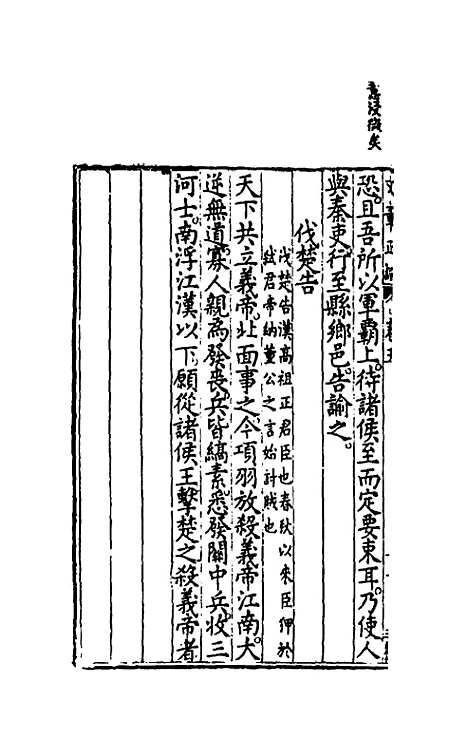 意浸微矣
恐且吾所以軍霸上待諸侯至而定要束耳乃使人
與秦吏行至縣鄉邑告諭之
伐楚告
伐楚告漢高祖正君臣也春秋以來臣狎於
弑君帝納董公之言始討賊也
天下共立義帝北面事之今項羽放殺義帝江南大
逆無道寡人親爲發喪兵皆縞素悉發關中兵收三
河士南浮江漢以下願從諸侯王擊楚之殺義帝者